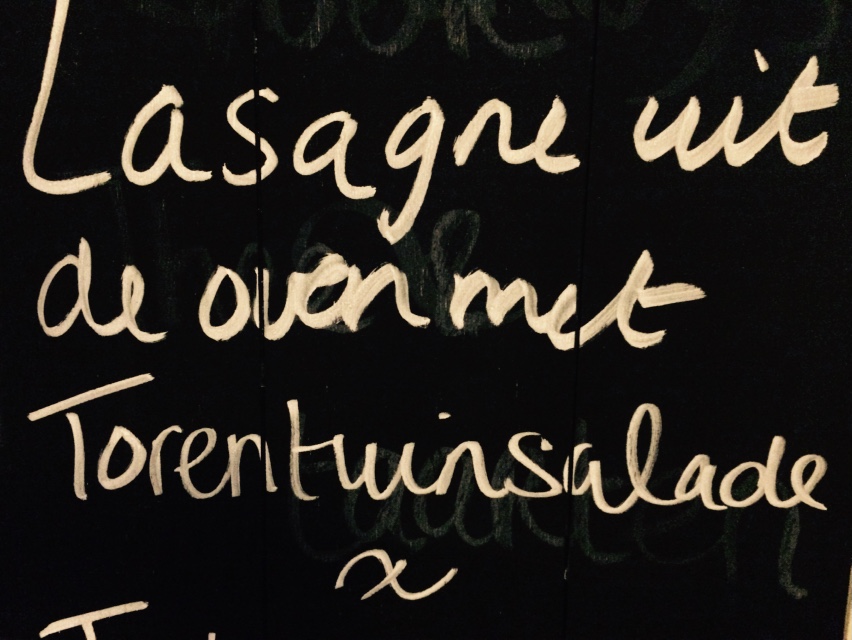 Lasagne uit
de oven met
Torentuinsalade
x